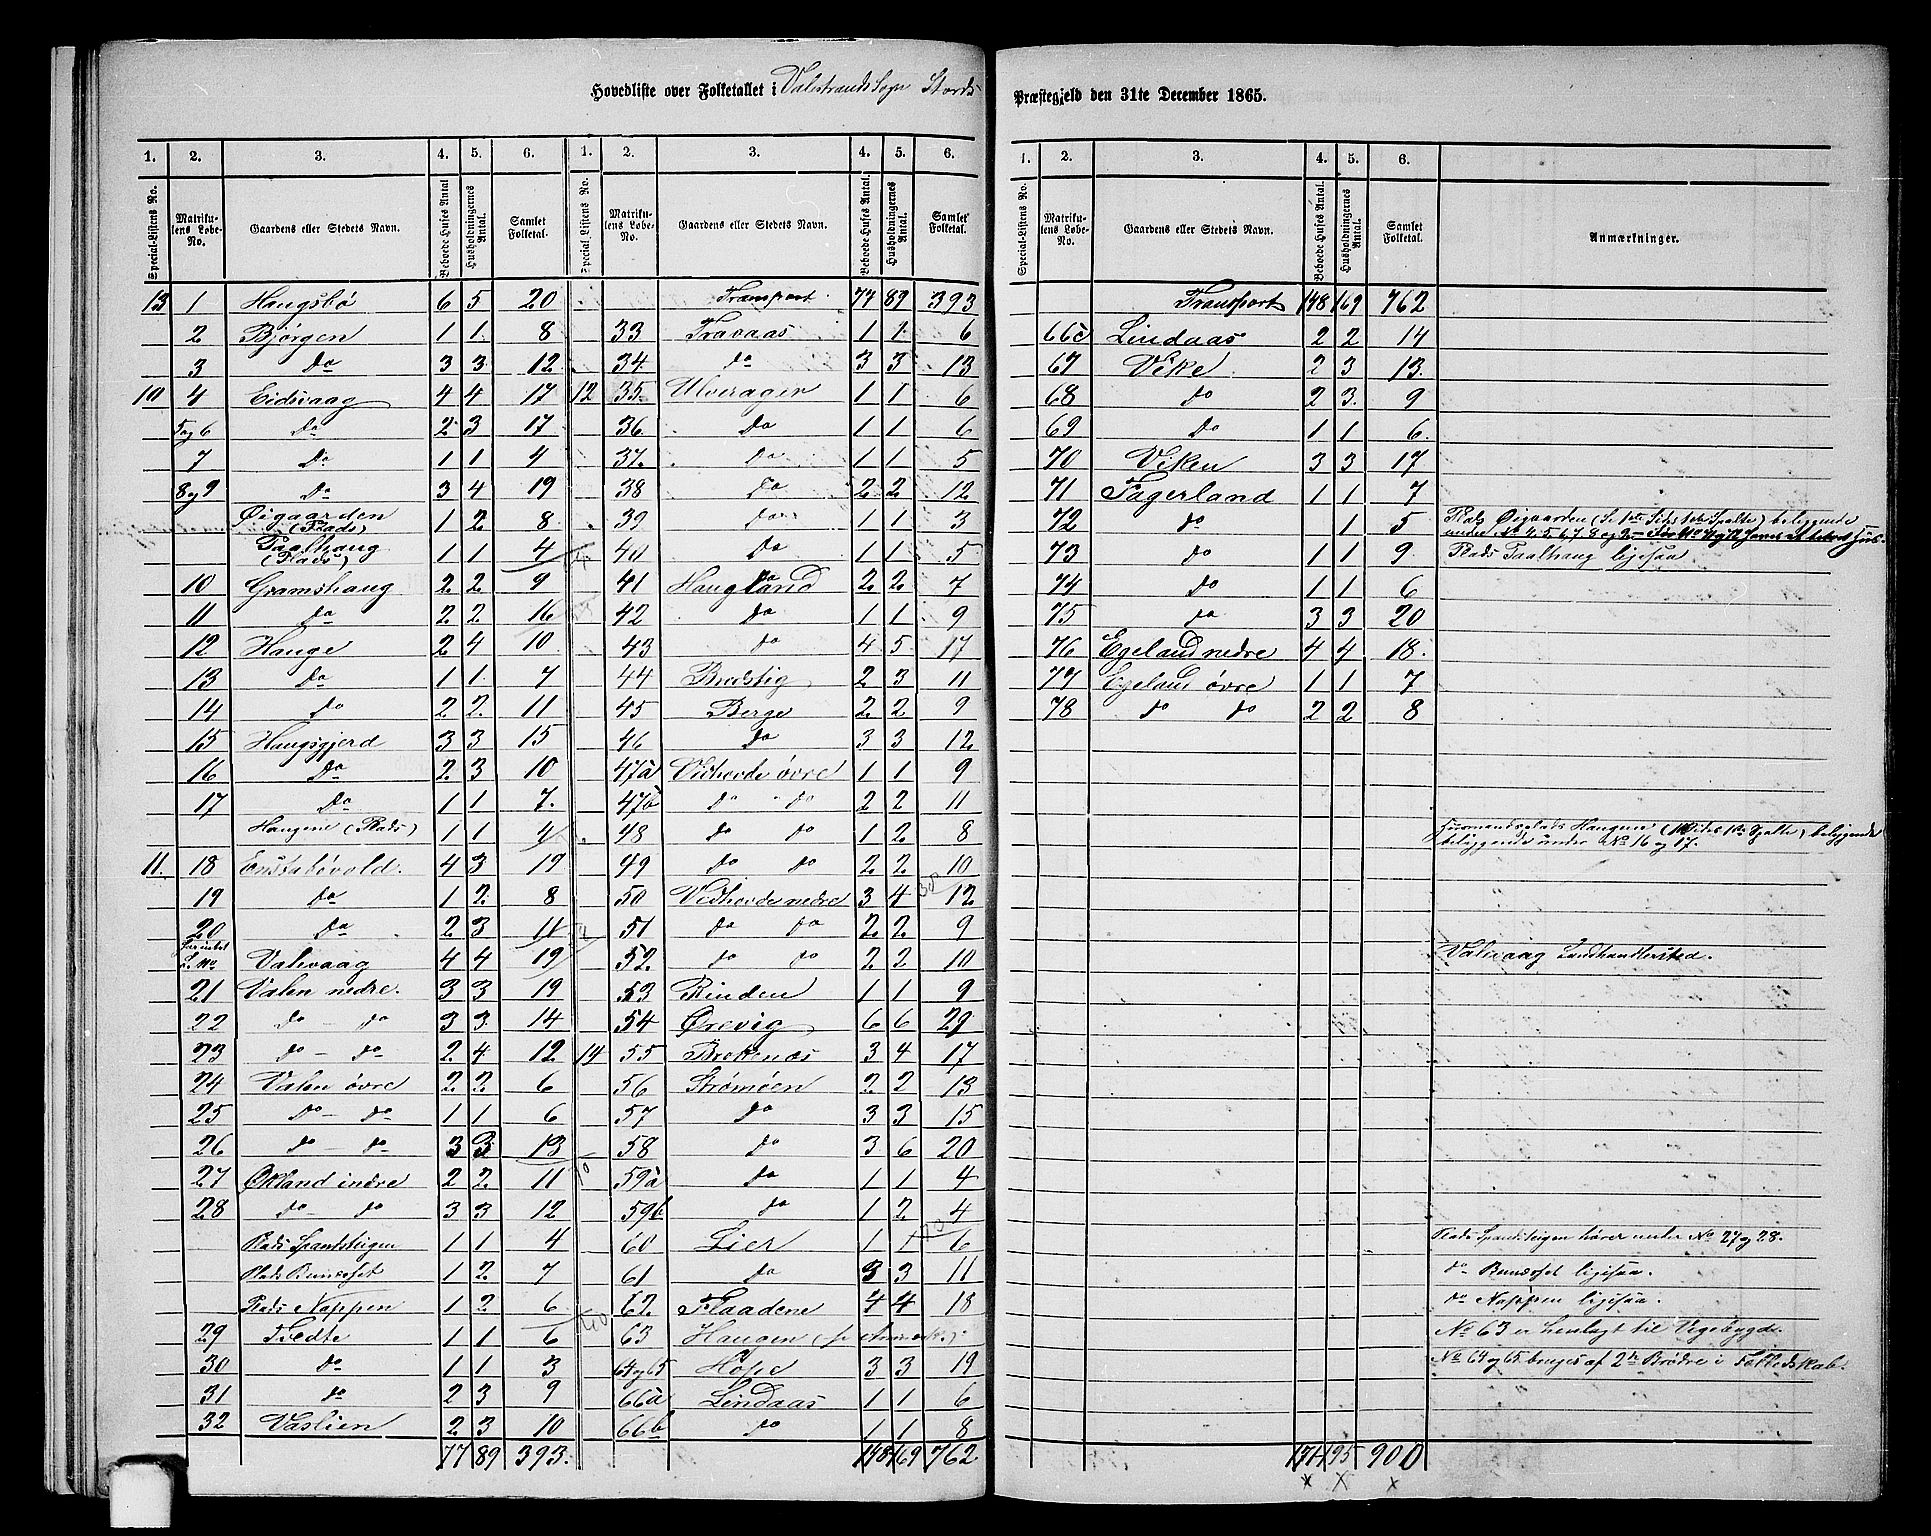 Hovedliste over Folketallet i Valestrands Sogn Stords Præstegjeld den 31te December 1865.
1. 2. 3. 4. 5. 6. 1. 2. 3. 4. 5. 6.
Special-Listens No. Matrikulens Løbe-No. Gaardens eller Stedets Navn. Beboede Huses Antal Husholdningernes Antal. Samlet Folketal. Special-Listens No. Matrikulens Løbe-No. Gaardens eller Stedets Navn. Beboede Huses Antal. Husholdningernes Antal. Samlet Folketal.
13 1 Haugsbö 6 5 20
2 Bjørgen 1 1 8
3 do 3 3 12
10 4 Eidsvaag 4 4 17
5 og 6 do 2 3 17
7 do 1 1 4
8 og 9 do 3 4 19
Øigaarden (Plads) 1 2 8
Taalhaug (Plads) 1 1 4
10 Gramshaug 2 2 9
11 do 2 2 16
12 Hauge 2 4 10
13 do 1 1 7
14 do 2 2 11
15 Haugsgjerd 3 3 15
16 do 2 3 10
17 do 1 1 7
Haugene (Plads) 1 1 4
11. 18 Enstabövold 4 3 19
19 do 1 2 8
20 do 2 3 11
L. No Valevaag 4 4 19
21 Valen nedre 3 3 19
22 do - do 3 3 14
23 do - do 2 4 12
24 Valen övre 2 2 6
25 do - do 1 1 6
26 do - do 3 3 13
27 Økland indre 2 2 11
28 do do 3 3 12
Plads Spandsteigen 1 1 4
Plads Bunæsset 1 2 7
Plads Nappen 1 2 6
29 Tvedte 1 1 6
30 do 1 1 3
31 do 2 3 9
32 Vaslien 2 3 10
77 89 393.
Transport 77 89 393
33 Travaas 1 1 6
34 do 3 3 13
12 35 Ulverager 1 1 6
36 do 1 1 6
37 do 1 1 5
38 do 2 2 12
39 do 1 1 3
40 do 1 1 5
41 Haugland 2 2 7
42 do 1 1 9
43 do 4 5 17
44 Bredstig 2 3 11
45 Berge 2 2 9
46 do 3 3 12
47a Vidhovde övre 1 1 9
47b do do 2 2 11
48 do do 1 2 8
49 do do 2 2 10
50 Vidhovde nedre 3 4 12
51 do do 2 2 9
52 do do 2 2 10
53 Rinden 1 1 9
54 Ørevig 6 6 29
14 55 Brekenæs 3 4 17
56 Strømøen 2 2 13
57 do 3 3 15
58 do 3 6 20
59a do 1 1 4
59b do 1 2 4
60 Lier 1 1 6
61 do 3 3 11
62 Flaadene 4 4 18
63 Haugen (se Anmærk.)
64 og 65 Hope 3 3 19
66a Lindaas 1 1 6
66b do 1 1 8
148 169 762
1. 2. 3. 4. 5. 6.
Special-Listens No. Matrikulens Løbe-No. Gaardens eller Stedets Navn. Beboede Huses Antal. Husholdningernes Antal. Samlet Folketal. Anmærkninger.
Transport 148 169 762
66c Lindaas 2 2 14
67 Vike 2 3 13
68 do 2 3 9
69 do 1 1 6
70 Viken 3 3 17
71 Fagerland 1 1 7
72 do 1 5 Plads Øigaarden (Se 1ste Sides 1ste Spalte) beliggende
under No 4, 5, 6, 7, 8 og 9 — For No 71 og 72 1 beboet Huus.
73 do 1 1 9 Plads Taalhaug ligesaa
74 do 1 1 6
75 do 3 3 20
76 Egeland nedre 4 4 18
77 Egeland övre 1 1 7
78 do do 2 2 8
Husmandsplads Haugene (1ste Sides 1ste Spalte) beliggende
beliggende under No 16 og 17.
Valevaag Landhandlersted.
Plads Spandsteigen hører under No 27 og 28.
do Bunæsset ligesaa.
do Nappen ligesaa.
No 63 er henlagt til Vigebygd.
No 64 og 65 bruges af 2de Brødre i Fælledskab.
171 195 900